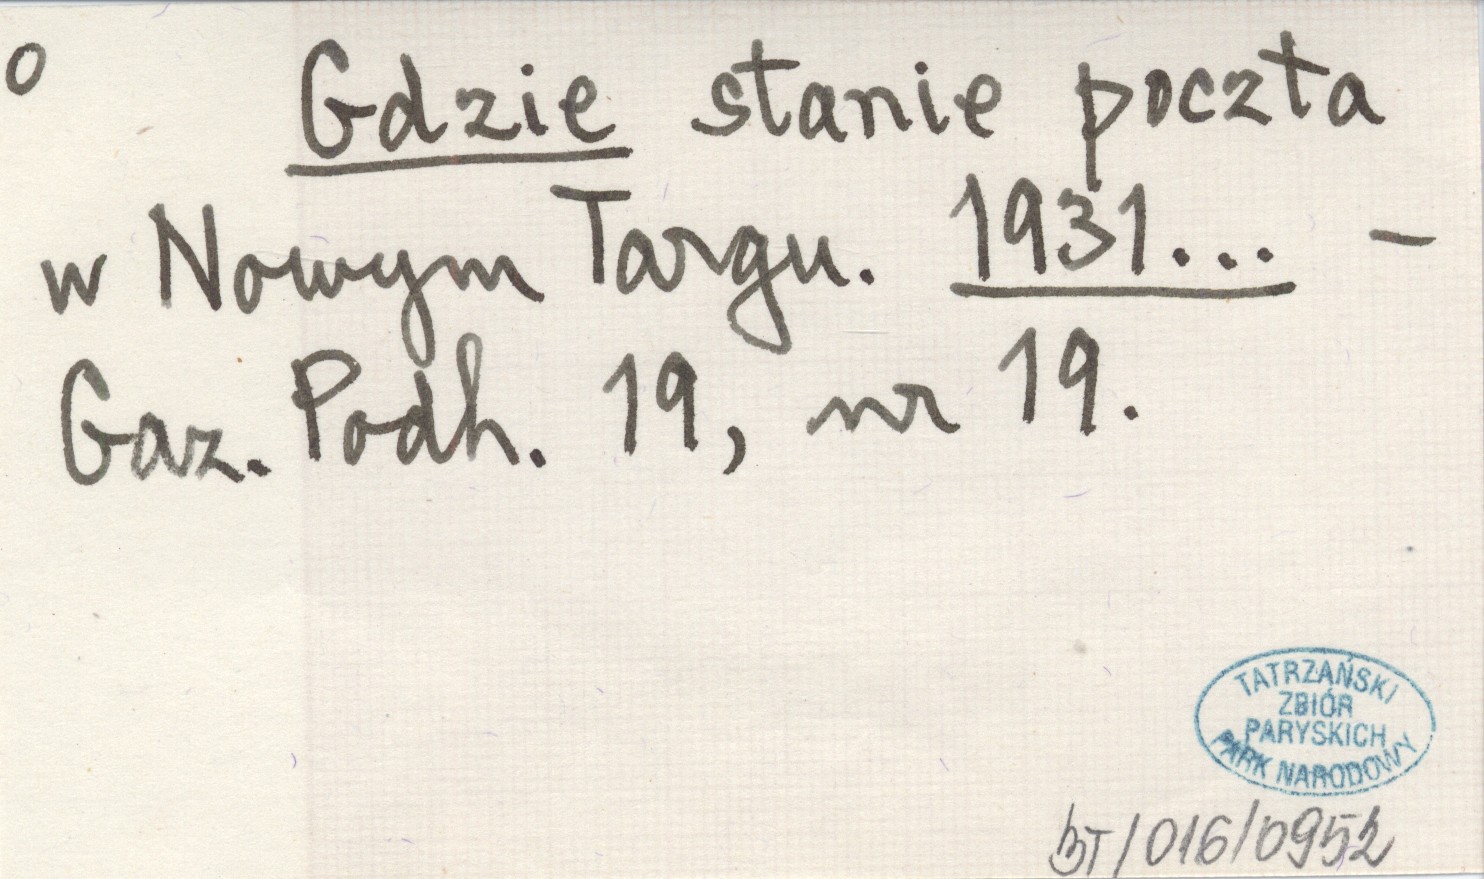 o Gdzie stanie poczta
w Nowym Targu. 1931... –
Gaz. Podh. 19, nr 19.
TATRZAŃSKI
ZBIÓR
PARYSKICH
PARK NARODOWY
BT/016/0952